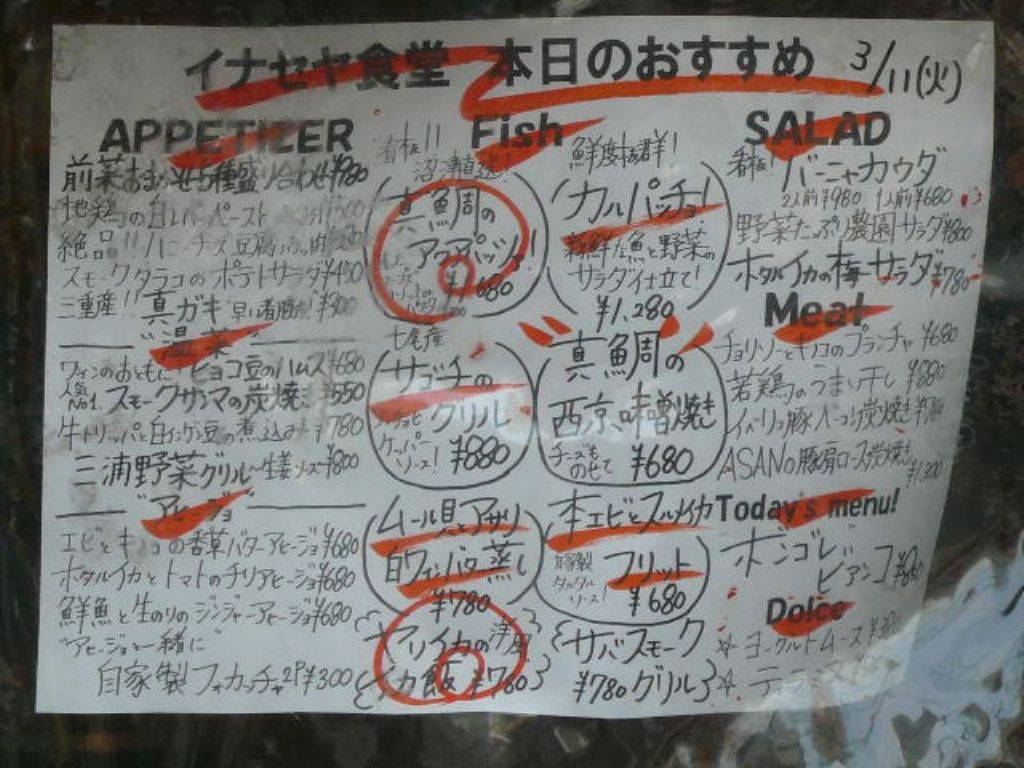 イナセヤ食堂 本日のおすすめ 3/11(火)
APPETIZER
前菜おまかせ5種盛り合わせ¥980
地鶏の白レバーペースト ¥500
絶品!!
スモークタラコのポテトサラダ¥450
三重産!! 真ガキ 早い者勝ち!¥300
温菜
ワインのおともに ヒヨコ豆のハムス ¥680
人気No1. スモークサンマの炭焼 ¥550
牛トリッパと白インゲン豆の煮込み ¥780
三浦野菜グリル〜生姜ソース¥800
"アヒージョ"
エビとキノコの香草バターアヒージョ¥680
ホタルイカとトマトのチリアヒージョ¥680
鮮魚と生のりのジンジャーアヒージョ¥680
"アヒージョと一緒に"
自家製フォカッチャ2P¥300
Fish
看板!!
沼津直送!
真鯛の
アクアパッツァ!
¥1,680
鮮度抜群!
カルパッチョ!
新鮮な魚と野菜の
サラダ仕立て!
¥1,280
七尾産
サヨリの
グリル
ケッパー
ソース!
¥880
真鯛の
西京味噌焼き
チーズも
のせて ¥680
ムール貝とアサリ
白ワインバター蒸し
¥780
本エビとスルメイカ
自家製
タルタル
ソース!
フリット
¥680
ヤリイカの
イカ飯 ¥780
サバスモーク
¥780グリル
SALAD
看板! バーニャカウダ
2人前¥980 1人前¥680
野菜たっぷり農園サラダ¥800
ホタルイカの梅サラダ¥780
Meat
チョリソーとキノコのプランチャ ¥680
若鶏のうまい干し ¥880
イベリコ豚ベーコン炭焼き¥780
ASANO豚肩ロース炭焼き
¥1,300
Today's menu!
ボンゴレ
ビアンコ
Dolce
☆ ヨーグルトムース
☆